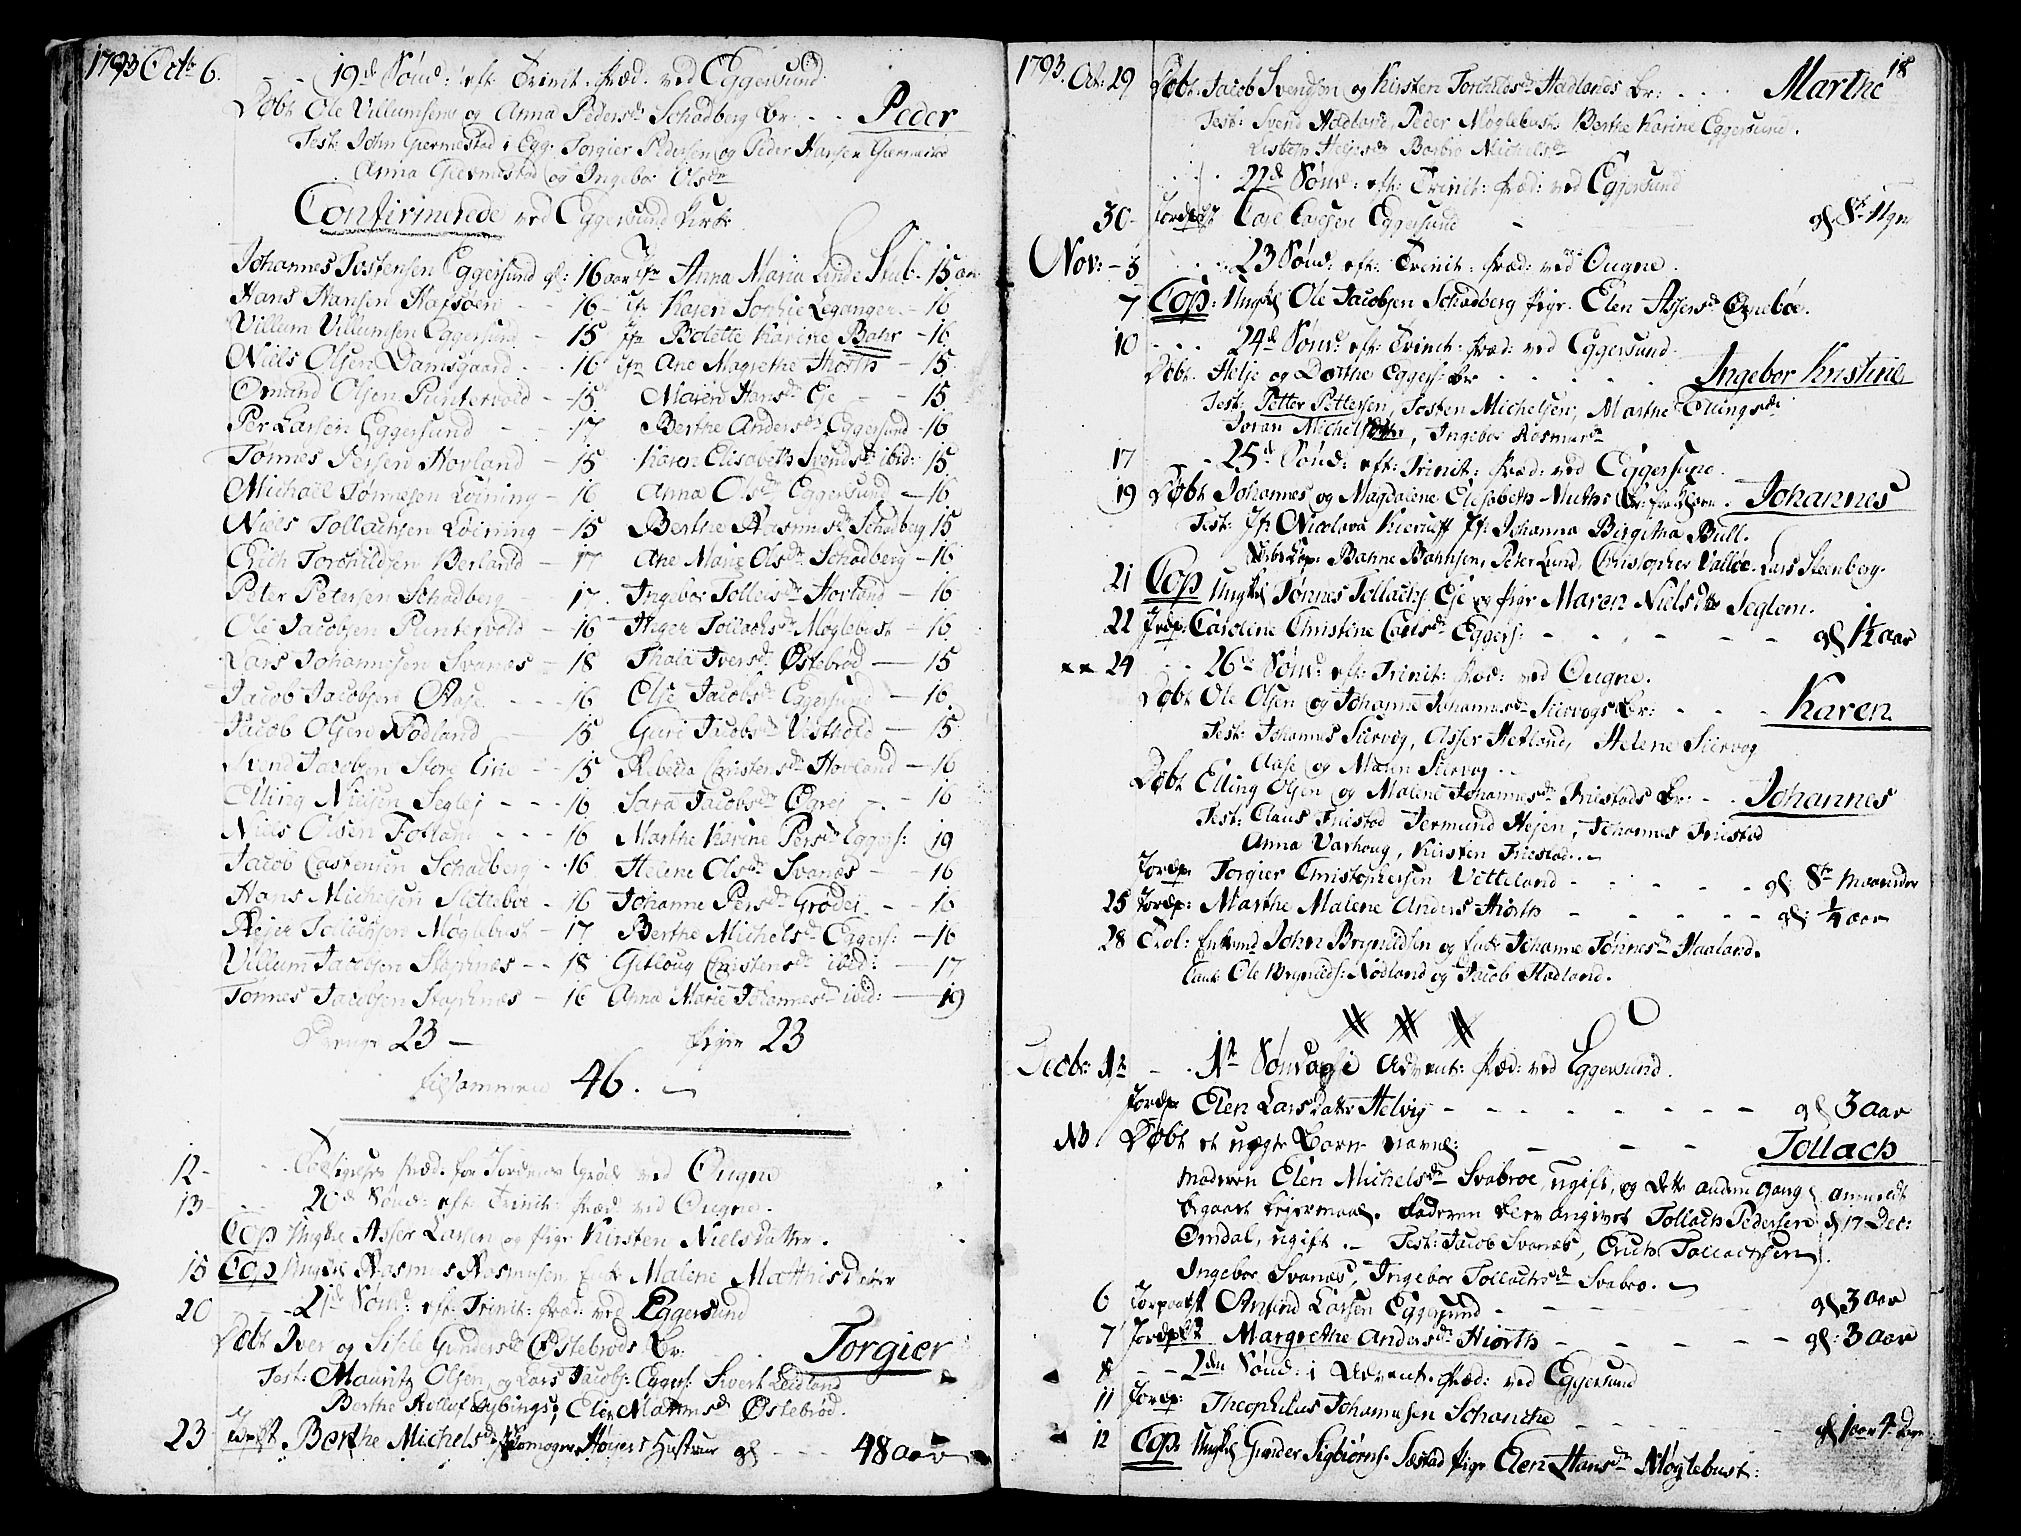 1793 Octr 6. - - 19de Sønd: eft: Trinit: præd: ved Eggersund
Døbt Ole Villumsens og Anna Pedersdr Schadberg Br: - - Peder
Test: John Giermestad i Egg: Torgier Pedersen og Peder Hansen Giermestad
Anna Giermestad og Ingebor Olsdr
Confirmerede ved Eggersund Kirke
Johannes Tostensen Eggersund gl: 16 aar Jfr Anna Maria Linde Stub - 15 aar
Hans Hansen Hafsøen - - 16 - Jfr Karen Sophie Leganger - 16
Villum Villumsen Eggersund - 15 Jfr Bolette Karine Bahr - 16
Niels Olsen Damsgaard - - 16 Jfr Ane Magrethe Hiorth - 15
Omund Olsen Puntervold - 15 Maren Hansdr Eje - - 15
Per Larsen Eggersund - - 17 Berthe Andersdr Eggersund - 16
Tønnes Persen Hovland - 15 Karen Elisabeth Svendsdr ibid: 15
Michael Tønnesen Løining - 16 Anna Olsdr Eggersund - 16
Niels Tollachsen Løining - 15 Berthe Rasmusdr Schadberg 15
Erich Torchildsen Berland - 17 Ane Marie Olsdr Schadberg - 16
Peter Petersen Schadberg - 17 Ingebor Tolleisdr Hovland - 16
Ole Jacobsen Puntervold - 16 Inger Tollachsdr Møglebust - 16
Lars Johannesen Svanes - 18 Thala Iversdr Østebrød - 15
Jacob Jacobsen Aase - - - 16 Else Jacobsdr Eggersund - 16
Jacob Olsen Nødland - 15 Guri Jacobsdr Vestvold - 15
Svend Jacobsen Store Eie - - 15 Rebecka Christensdr Hovland - 16
Elling Nielsen Seglej - - - 16 Sara Jacobsdr Egrej - - 16
Niels Olsen Fotland - - - 16 Marthe Karine Persdr Eggers: 19
Jacob Carstensen Schadberg - 16 Helene Olsdr Svanæs - - 16
Hans Michelsen Sletteboe - 16 Johanne Persdr Grødei - - 16
Rejer Tollachsen Møglebust - 17 Berthe Michelsdr Eggers: - 16
Villum Jacobsen Stapnes - - 18 Gitloug Christensdr ibid: - 17
Tønnes Jacobsen Stapnæs - 16 Anna Marie Johannesdr ibid: - 19
Drenge 23 - Piger 23
tilsammen 46. -
12 - - - præd. for Jordens Grøde ved Ougne
13 - - - 20de Sønd: eft: Trinit: præd: ved Ougne.
Cop Ungkl Asser Larsen og pige Kirsten Nielsdatter.
15 Cop Ungkl Rasmus Rasmusen, Enke Malene Mathisdatter
20 - - 21de Sønd: eft: Trinit: præd: ved Eggersund
Døbt Iver og Sisele Gundersdr Østebrøds Br: Torgier
Test: Mauritz Olsen, og Lars Jacobs: Eggers: Sivert Leidland
Berthe Lybings, Elen Østebrød.
23 Jordpst Berthe Michelsdr Høyers Hustrue gl - - - 48 aar
1793. Oct: 29 Døbt. Jacob Svendsen og Kirsten Torchildsdr Hadlands Br: . . . Marthe 18
Test: Svend Hadland, Peder Møglebust, Berthe Karine Eggersund.
Lisbeth Helgesdr Barbro Michelsdr
22de Sønd: eft: Trinit: præd: ved Eggersund
30 - Jordpst Carl Larsen Eggersund - gl 8te Ugr
Nov: - 3 . . 23 Sønd: eft: Trinit: præd: ved Ougne.
7 Cop: Ungkl Ole Jacobsen Schadberg pige Elen Assersdr Egneboe.
10 . . . 24de Sønd: eft: Trinit: præd: ved Eggersund.
Døbt. Helje og Dorthe Eggers: Br . . . . . Ingebor Kristine
Test: Petter Pettersen, Tosten Michelsen, Marthe Ellingsdr
Joran Michelsdatter, Ingebor Rasmusdr
17 - 25de Sønd: eft: Trinit: præd: ved Eggersund.
19 Døbt Johannes og Magdalene Elisabeth Muths Br: . Johannes
Test: Jfr Nicolova Kierulff Jfr: Johanna Birgitha Bull.
Bahne Bahnsen, Peter Lund, Christopher Valløe. Lars Steenberg.
21 Cop Ungkl Tønnes Tollachs: Eje og pige Maren Nielsdtr Seglem.
22 Jordp: Caroline Christine Carlsdr Eggers: - - - - gl 1½ aar
xx 24 . . 26de Sønd: eft: Trinit: præd: ved Ougne.
Døbt Ole Olsen og Johanne Johannesdr Siervogs Br: - - - Karen
Test: Johannes Siervog, Asser Hetland, Helene Siervog
Aase og Maren Siervog . .
Døbt Elling Olsen og Malene Johannesdr Friestads Br: - - Johannes
Test: Claus Friestad Jermund Hejen, Johannes Friestad
Anna Varhoug, Kirsten Friestad. -
Jordp: Torgier Christophersen Vetteland - - - - gl: 8te maaneder
25 Jordp: Marthe Malene Anders Hiorth - - - - gl: ¼ aar
28 Trol: Enkmd John Brynildsen og Enke Johanne Tønnesdr Haaland.
Caut: Ole Brynilds: Nødland og Jacob Hadland.
Decbr: 1te - . 1te Søndag i Advent: præd: ved Eggersund.
Jordp: Elen Larsdatter Helvig - - - - - - gl 3 aar
NB Døbt et uægte Barn navnl: - - - Tollach
moderen Elen Michelsdr Svabroe, ugift, og dette anden gang anmeldt
begaaet Leiermaal. Faderen blev angivet Tollach Pedersen d 17 Dec:
Omdal, ugift. - Test: Jacob Svanæs, Erich Tollachsen
Ingebor Svanæs, Ingebor Tollachsdr Svabro. -
6 Jordpaakst Anfind Larsen Eggersund - - - - gl 3 aar
7 Jordpst Margrethe Andersdr Hiorth - - - - gl: 3 aar
8 - - 2den Sønd: i Advent. præd: ved Eggersund
11 Jordp: Theophilus Johannesen Schanche - - - gl 1 aar 4 Dage
12 Cop: Ungkl Gunder Sigbiørns: Sæstad pige Elen Hansdr Møglebust: